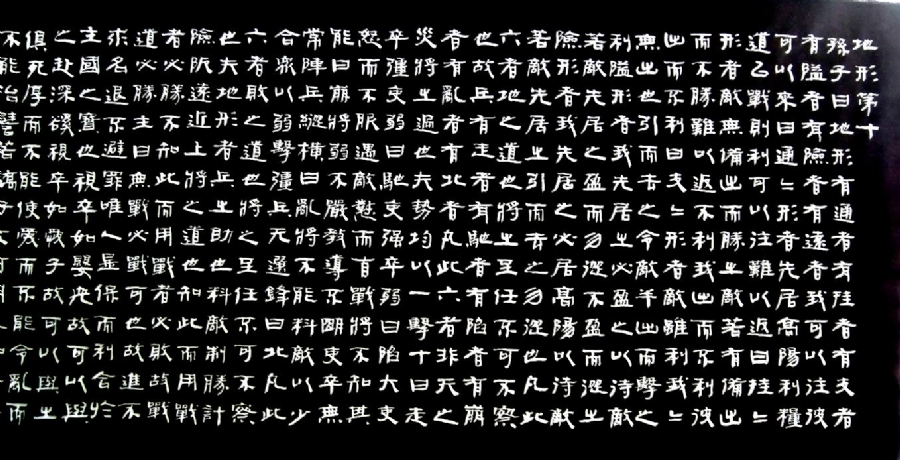 地形第十
孫子曰地形有通者有挂者有支者
有隘者有險者有遠者我可以往彼
可以來曰通〻形者先居高陽利糧
道以戰則利可以往難以返曰挂〻
形者敵無備出而勝之敵若有備出
而不勝難以返不利我出而不利彼
出而不利曰支〻形者敵雖利我〻
無出也引而去之令敵半出而擊之
利隘形者我先居之必盈之以待敵
若敵先居之盈而勿從不盈而從之
險形者我先居之必居高陽以待敵
若敵先居之引而去之勿從也凡此
六者地之道也將之至任不可不察
也故兵有走者有馳者有陷者有崩
者有亂者有北者凡此六者非天之
災將之過也夫勢均以一擊十曰走
卒彊吏弱曰馳吏强卒弱曰陷大吏
怒而不服遇敵懟而自戰將不知其
能曰崩將弱不嚴教導不明吏卒無
常陣兵縱橫曰亂將不能料敵以少
合衆以弱擊彊兵無選鋒曰北凡此
六者敗之道也將之至任不可不察
也夫地形者兵之助也料敵制勝計
險阨遠近上將之道也知此而用戰
者必勝不知此而用戰者必敗故戰
道必勝主曰無戰必戰可也故進不
求名退不避罪唯人是保而利合於
主國之寶也視卒如嬰兒故可以與
之赴深磎視卒如愛子故可以與之
俱死厚而不能使愛而不能令亂而
不能治譬若